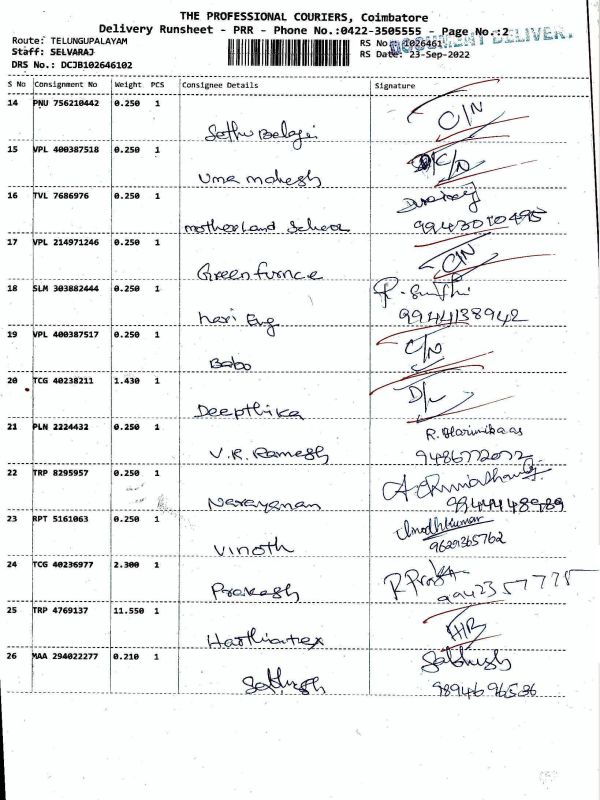 THE PROFESSIONAL COURIERS, Coimbatore
Delivery Runsheet - PRR - Phone No.:0422-3505555 - Page No.:2
Route: TELUNGUPALAYAM
Staff: SELVARAJ
DRS No.: DCJB102646102
RS No.: 1026461
RS Date: 23-Sep-2022
DOCUMENT DELIVERY
S No Consignment No Weight PCS Consignee Details Signature
14 PNU 756210442 0.250 1 C/N
15 VPL 400387518 0.250 1 Uma mahesh C/N
16 TVL 7686976 0.250 1 motherland
17 VPL 214971246 0.250 1 Green furnce C/N
18 SLM 303882444 0.250 1 hari Eng 9944138942
19 VPL 400387517 0.250 1 Babo C/N
20 TCG 40238211 1.430 1 Deepthika D/L
21 PLN 2224432 0.250 1 V.R. Ramesh
22 TRP 8295957 0.250 1 Narayanan
23 RPT 5161063 0.250 1 Vinoth 9629365762
24 TCG 40236977 2.300 1 Prakash
25 TRP 4769137 11.550 1
26 MAA 294022277 0.210 1 9894696536